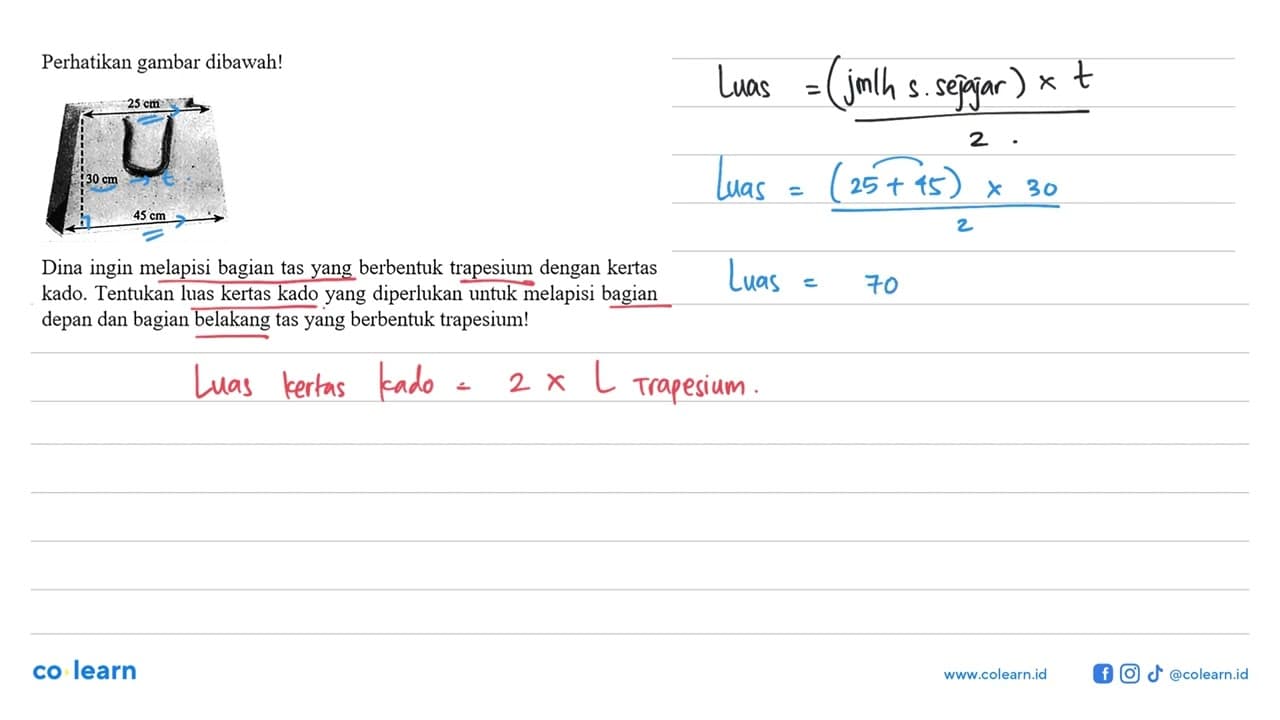 Perhatikan gambar dibawah!
25 cm
30 cm → t
45 cm
Dina ingin melapisi bagian tas yang berbentuk trapesium dengan kertas
kado. Tentukan luas kertas kado yang diperlukan untuk melapisi bagian
depan dan bagian belakang tas yang berbentuk trapesium!
Luas = (jmlh s. sejajar) × t
2 .
Luas = (25 + 45) × 30
2
Luas = 70
Luas kertas kado = 2 × L Trapesium.
co learn
www.colearn.id
@colearn.id